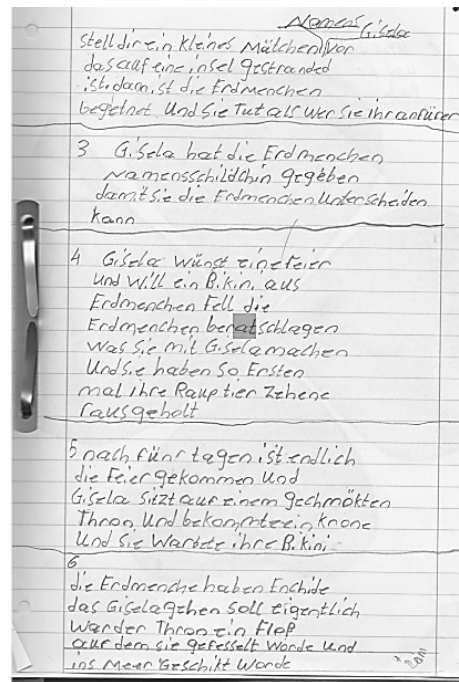 Namens Gisela
Stell dir ein kleines Mälchen vor
das auf eine insel gestranded
ist. dan ist die Erdmenchen
begetnet Und Sie Tut als wer Sie ihr anfürer
3 Gisela hat die Erdmenchen
Namensschildchin gegeben
damit sie die Erdmenchen Unterscheiden
kann
4 Gisela wünst eine feier
Und Will ein Bikini aus
Erdmenchen Fell die
Erdmenchen beratschlagen
Was Sie mit Gisela machen
Und sie haben So Ersten
mal ihre Rauptier Zehene
rausgeholt
5 nach fünf tagen ist endlich
die Feier gekommen Und
Gisela Sitzt auf einem gechmökten
Thron Und bekommt ein krone
Und Sie Wartete ihre Bikini
6
die Erdmenche haben Enchide
das Gisela gehen Soll eigentlich
War der Thron ein Floß
auf dem sie gefesselt Worde Und
ins Meer Geschikt Worde